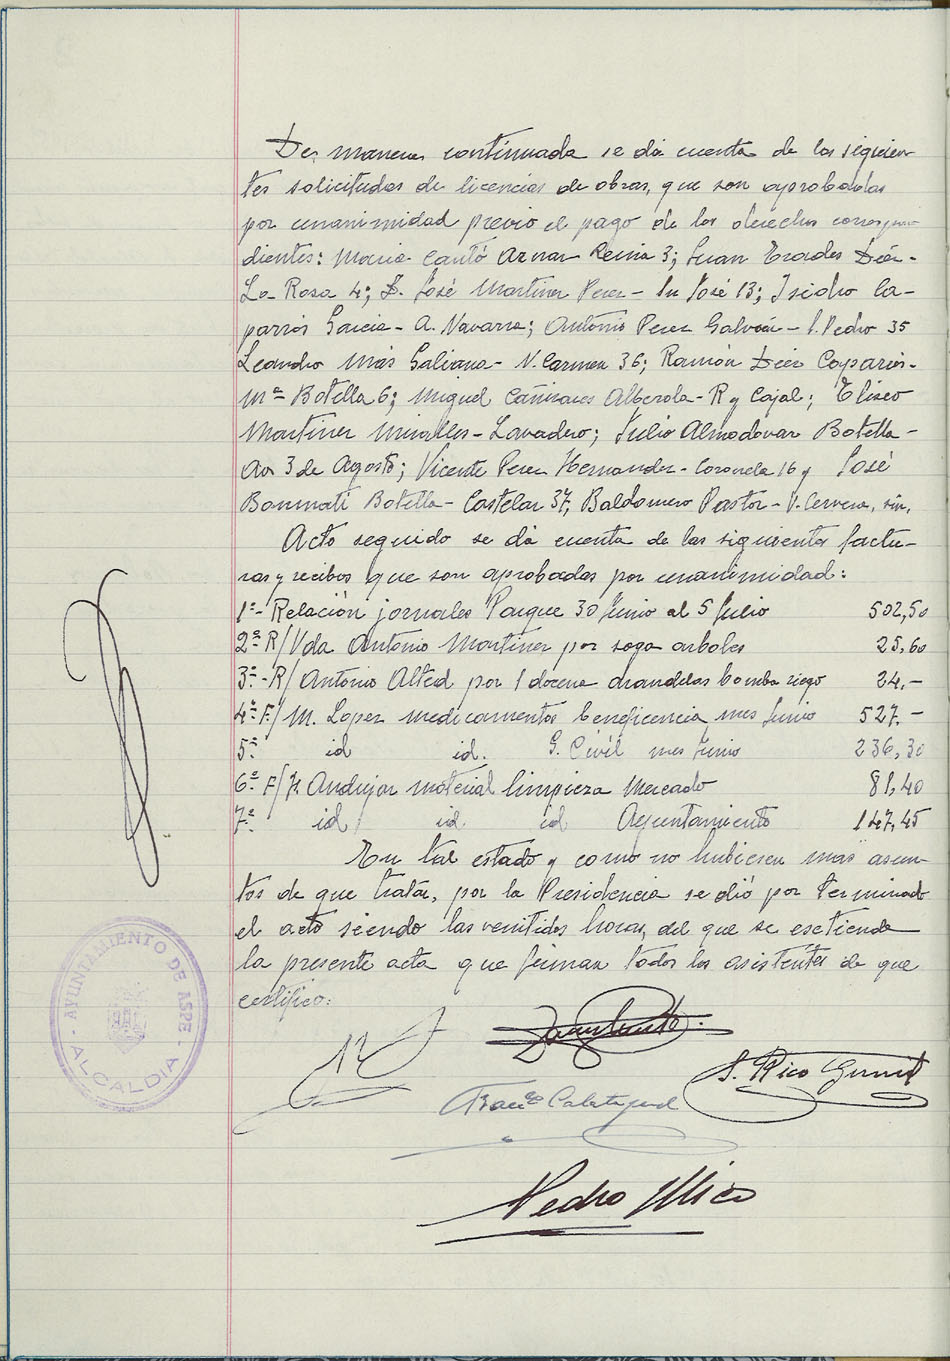 De manera continuada se dá cuenta de las siguien
tes solicitudes de licencias de obras, que son aprobadas
por unanimidad previo el pago de los derechos correspon
dientes: Maria Cantó Aznar Reina 3; Juan Erades Diéz-
La Rosa 4; D. José Martinez Perez - Sn José 13; Isidro Ca-
parrós Garcia - A. Navarra; Antonio Perez Galvañ - S. Pedro 35
Leandro Más Galiana - V. Carmen 36; Ramón Diéz Caparrós-
Mª Botella 6; Miguel Cañizares Alberola - R y Cajal; Eliseo
Martinez Miralles - Lavadero; Julio Almodovar Botella -
Av 3 de Agosto; Vicente Perez Hernandez - Coronela 16 y José
Bonmatí Botella - Castelar 37, Baldomero Pastor - V. Cervera, s/n.
Acto seguido se dá cuenta de las siguientes factu-
ras y recibos que son aprobadas por unanimidad:
1ª- Relación jornales Parque 30 Junio al 5 Julio 502,50
2ª- R/ Vda Antonio Martinez por soga arboles 25,60
3ª- R/ Antonio Alted por 1 docena arandelas bomba riego 24.-
4ª- F/ M. Lopez medicamentos beneficencia mes Junio 527.-
5ª id id. G. Civil mes Junio 236,30
6ª F/ Andujar material limpieza Mercado 81,40
7ª. id id id Ayuntamiento 147,45
En tal estado y como no hubiesen mas asun-
tos de que tratar, por la Presidencia se dió por terminado
el acto siendo las ventidos horas, del que se esctiende
la presente acta que firman todos los asistentes de que
certifico:
AYUNTAMIENTO DE ASPE
- ALCALDIA -
S. Rico
Franco Calatayud
Pedro Mico